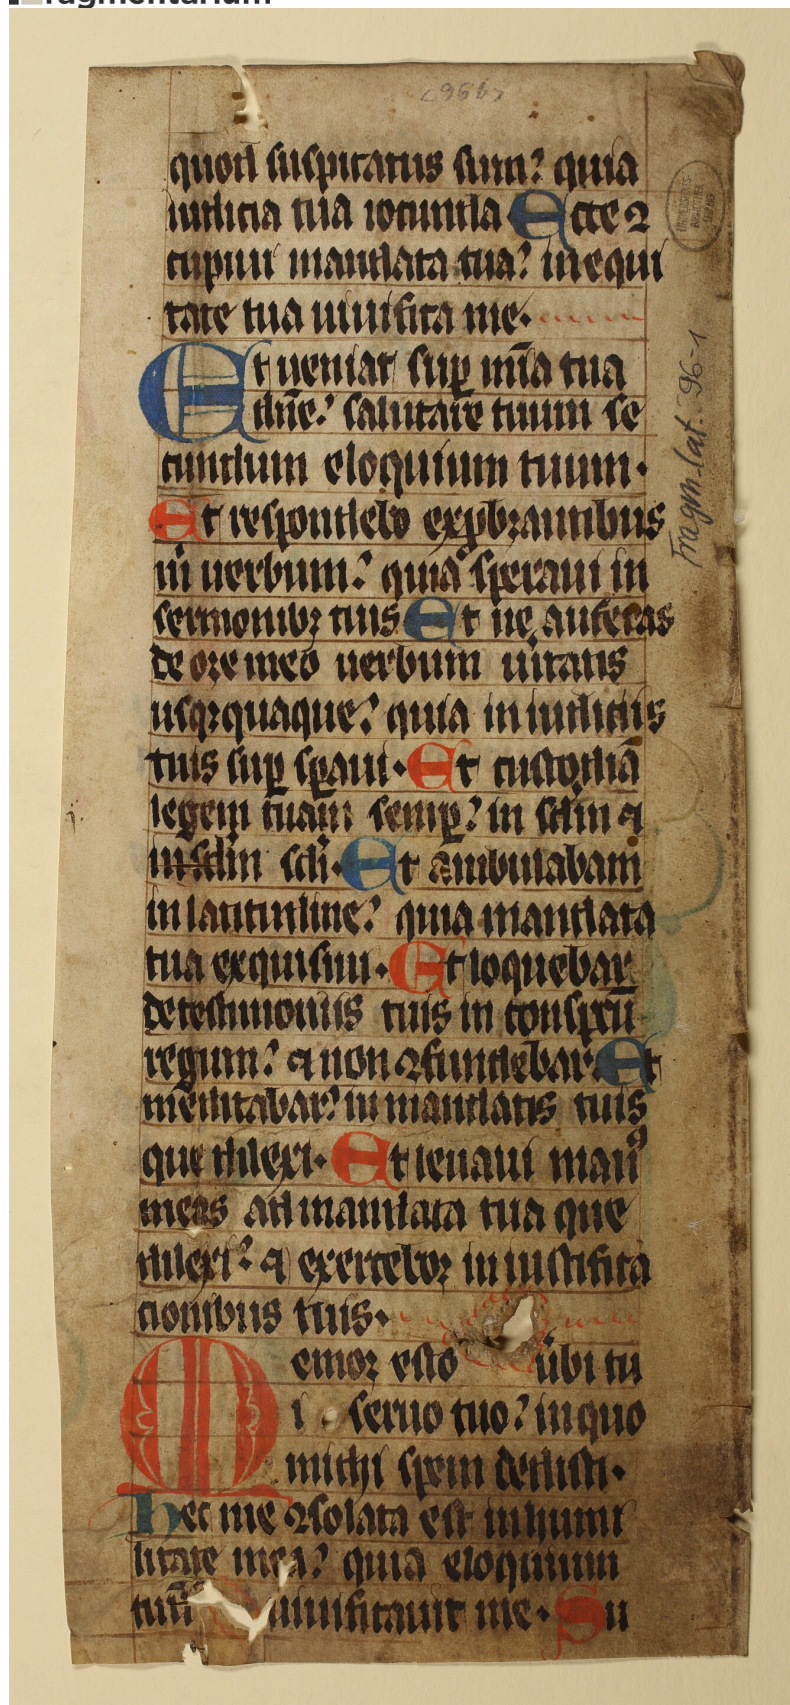 fragmentarium
<4966>
quod suspicatus sum? quia
iudicia tua iocunda Ecce ꝯ
cupiui mandata tua? in equi
tate tua uiuifica me.
Et ueniat suꝑ mīa tua
dn̄e? salutare tuum se
cundum eloquium tuum.
Et respondebo exp̱brantibus
m̄ uerbum? quia speraui in
sermonibꝫ tuis Et ne auferas
de ore meo uerbum uitatis
usqꝫquaque? quia in iudiciis
tuis suꝑ sꝑaui. Et custodiā
legem tuam semꝑ? in sc̄lm ⁊
in sc̄lm sc̄li. Et ambulabam
in latitudine? quia mandata
tua exquisiui. Et loquebar
de testimoniis tuis in conspcū
regum? ⁊ non ꝯfundebar. Et
meditabar? in mandatis tuis
que dilexi. Et leuaui manꝰ
meas ad mandata tua que
dilexi? ⁊ exercebor in iustifica
cionibus tuis.
Memor esto ūbi tu
i seruo tuo? in quo
michi spem dedisti.
Hec me ꝯsolata est in humi
litate mea? quia eloquium
tuū uiuificauit me. Su
UNIVERSITÄTS-
BIBLIOTHEK
LEIPZIG
Fragm. lat. 96-1